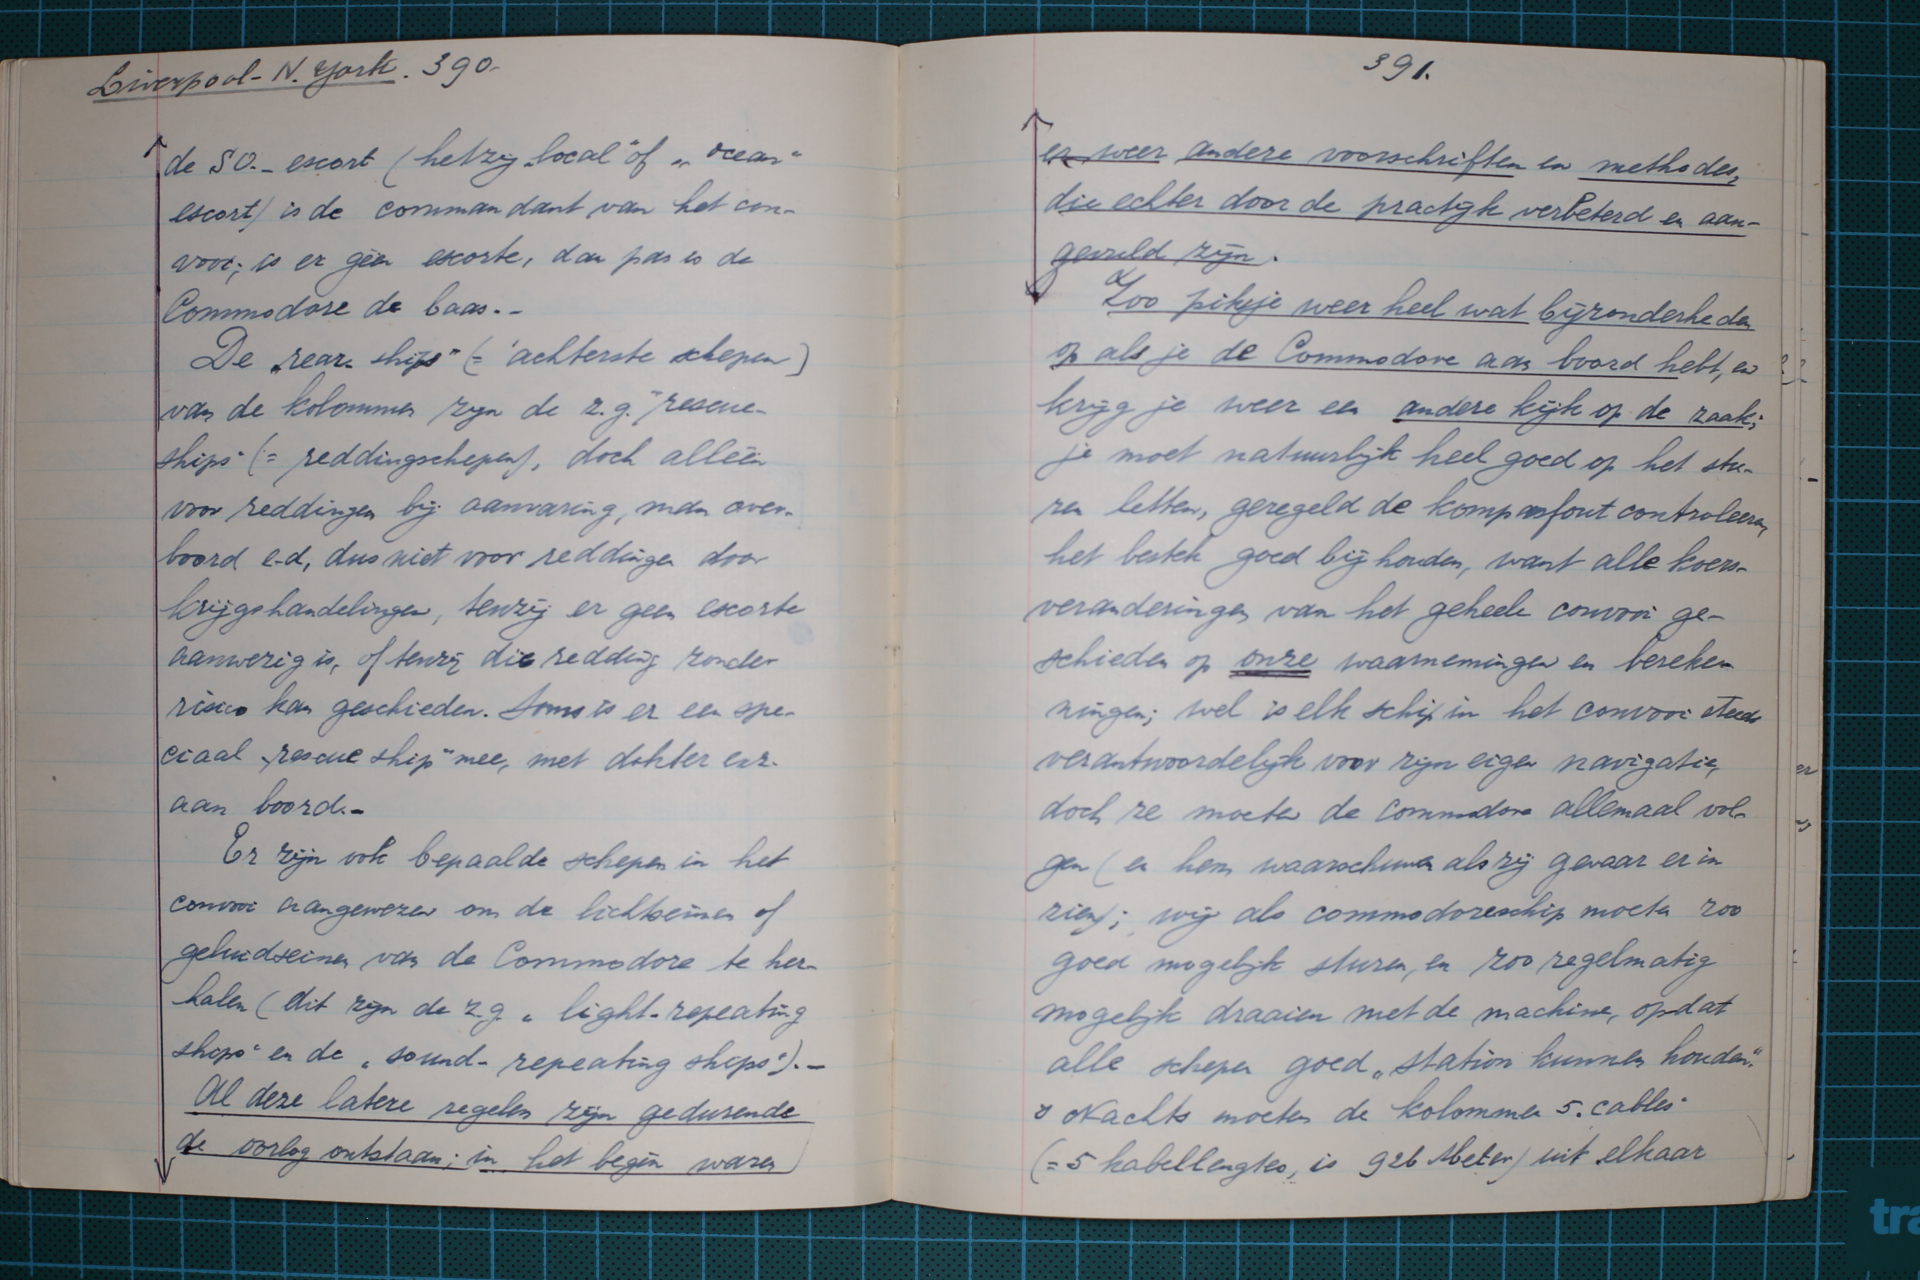 Liverpool - N. York. 390.
de S.O. - escort (hetzij „local" of „ocean"
escort) is de commandant van het con-
vooi; is er géén escorte, dan pas is de
Commodore de baas. -
De „rear-ships" (= achterste schepen)
van de kolommen zijn de z.g. "rescue-
ships" (= reddingschepen), doch alléén
voor reddingen bij aanvaring, man over-
boord e.d., dus niet voor reddingen door
krijgshandelingen, tenzij er geen escorte
aanwezig is, of tenzij die redding zonder
risico kan geschieden. Soms is er een spe-
ciaal „rescue ship" mee, met dokter enz.
aan boord. -
Er zijn ook bepaalde schepen in het
convooi aangewezen om de lichtseinen of
geluidseinen van de Commodore te her-
halen (dit zijn de z.g. „light-repeating
ships" en de „sound-repeating ships"). -
Al deze latere regelen zijn gedurende
de oorlog ontstaan; in het begin waren
391.
er weer andere voorschriften en methodes,
die echter door de practijk verbeterd en aan-
gevuld zijn.
Zoo pik je weer heel wat bijzonderheden
op als je de Commodore aan boord hebt, en
krijg je weer een andere kijk op de zaak;
je moet natuurlijk heel goed op het stu-
ren letten, geregeld de kompasfout controleeren,
het bestek goed bijhouden, want alle koers-
veranderingen van het geheele convooi ge-
schieden op onze waarnemingen en bereke-
ningen; wel is elk schip in het convooi steeds
verantwoordelijk voor zijn eigen navigatie,
doch ze moeten de commodore allemaal vol-
gen (en hem waarschuwen als zij gevaar er in
zien); wij als commodoreschip moeten zoo
goed mogelijk sturen, en zoo regelmatig
mogelijk draaien met de machine, opdat
alle schepen goed „station kunnen houden".
's Nachts moeten de kolommen 5. cables
(= 5 kabellengtes, is 926 Meter) uit elkaar
tra